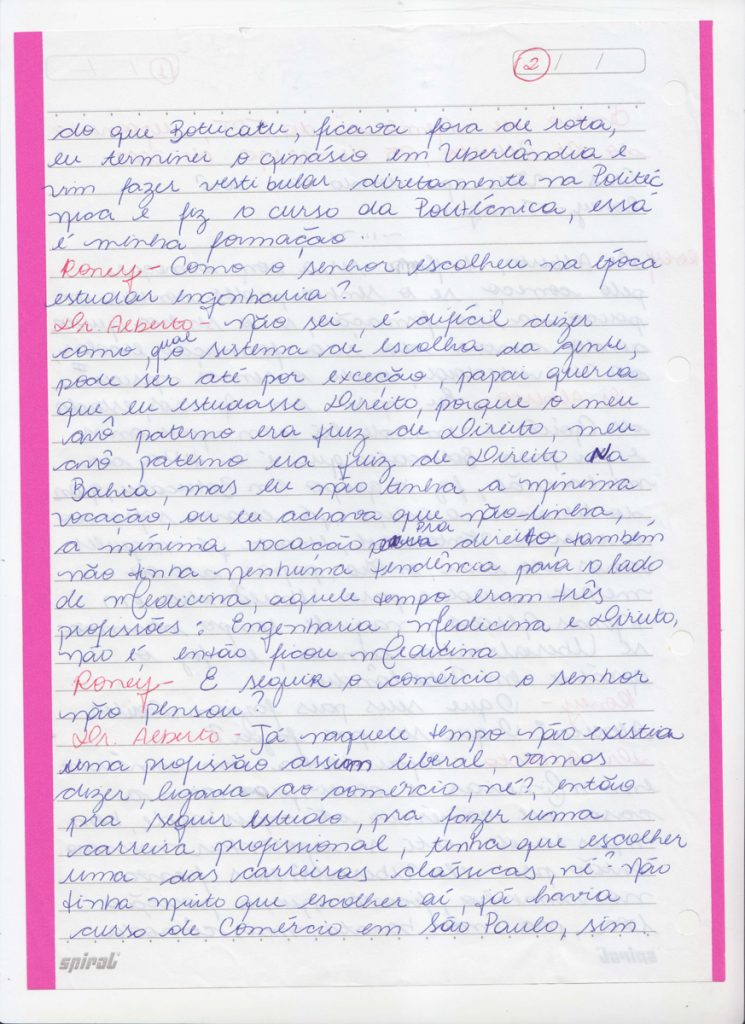 2 / /
do que Botucatu, ficava fora de rota,
eu terminei o ginásio em Uberlândia e
vim fazer vestibular diretamente na Politéc
nica e fiz o curso da Politécnica, essa
é minha formação.
Roney - Como o senhor escolheu na época
estudar engenharia?
Dr. Alberto - Não sei, é difícil dizer
como, qual o sistema de escolha da gente,
pode ser até por exceção, papai queria
que eu estudasse Direito, porque o meu
avô paterno era juiz de Direito, meu
avô paterno era juiz de Direito Na
Bahia, mas eu não tinha a mínima
vocação, ou eu achava que não tinha,
a mínima vocação pra direito, também
não tinha nenhuma tendência para o lado
de Medicina, aquele tempo eram três
profissões: Engenharia Medicina e Direito,
não é, então ficou Medicina
Roney - E seguir o comércio o senhor
não pensou?
Dr. Alberto - Já naquele tempo não existia
uma profissão assim liberal, vamos
dizer, ligada ao comércio, né?, então
pra seguir estudo, pra fazer uma
carreira profissional, tinha que escolher
uma das carreiras clássicas, né? Não
tinha muito que escolher aí, já havia
curso de Comércio em São Paulo, sim.
spiral